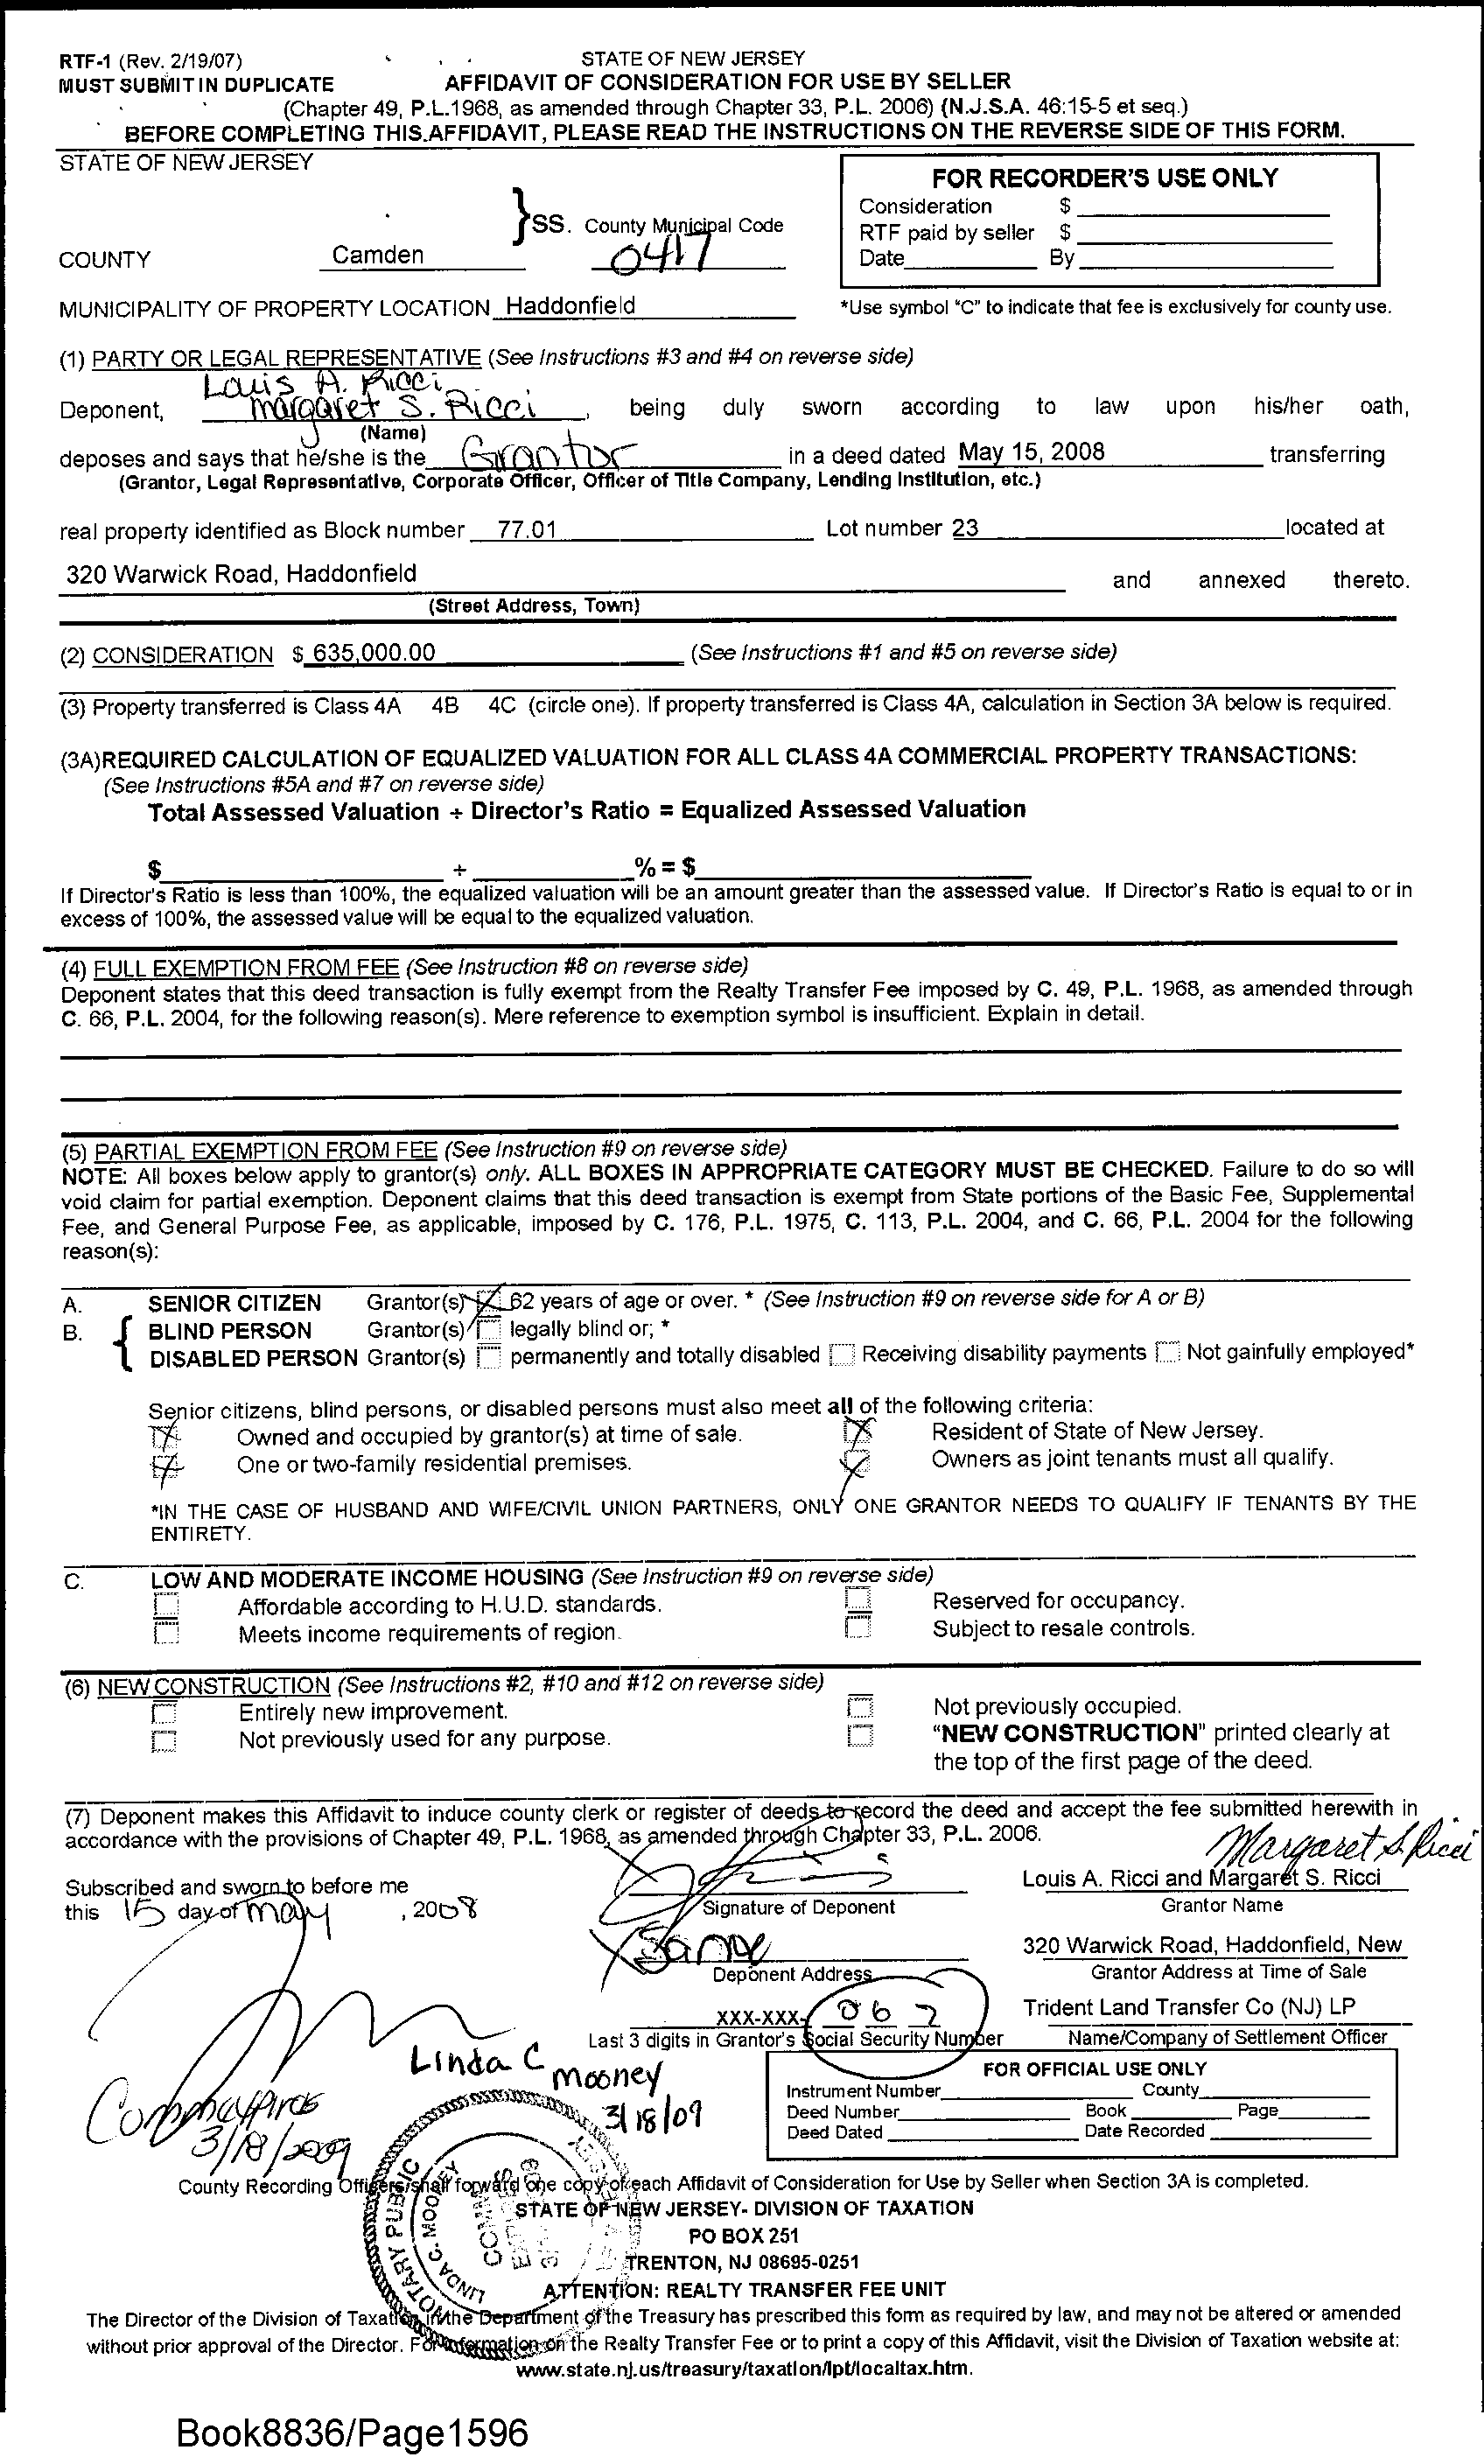 RTF-1 (Rev. 2/19/07)
STATE OF NEW JERSEY
MUST SUBMIT IN DUPLICATE
AFFIDAVIT OF CONSIDERATION FOR USE BY SELLER
(Chapter 49, P.L.1968, as amended through Chapter 33, P.L. 2006) (N.J.S.A. 46:15-5 et seq.)
BEFORE COMPLETING THIS AFFIDAVIT, PLEASE READ THE INSTRUCTIONS ON THE REVERSE SIDE OF THIS FORM.
STATE OF NEW JERSEY
FOR RECORDER'S USE ONLY
Consideration $
RTF paid by seller $
Date By
}SS. County Municipal Code
COUNTY Camden 0417
MUNICIPALITY OF PROPERTY LOCATION Haddonfield
*Use symbol "C" to indicate that fee is exclusively for county use.
(1) PARTY OR LEGAL REPRESENTATIVE (See Instructions #3 and #4 on reverse side)
Louis A. Ricci
Deponent, Margaret S. Ricci, being duly sworn according to law upon his/her oath,
(Name)
deposes and says that he/she is the Grantor in a deed dated May 15, 2008 transferring
(Grantor, Legal Representative, Corporate Officer, Officer of Title Company, Lending Institution, etc.)
real property identified as Block number 77.01 Lot number 23 located at
320 Warwick Road, Haddonfield and annexed thereto.
(Street Address, Town)
(2) CONSIDERATION $ 635,000.00 (See Instructions #1 and #5 on reverse side)
(3) Property transferred is Class 4A 4B 4C (circle one). If property transferred is Class 4A, calculation in Section 3A below is required.
(3A)REQUIRED CALCULATION OF EQUALIZED VALUATION FOR ALL CLASS 4A COMMERCIAL PROPERTY TRANSACTIONS:
(See Instructions #5A and #7 on reverse side)
Total Assessed Valuation ÷ Director's Ratio = Equalized Assessed Valuation
$ ÷ % = $
If Director's Ratio is less than 100%, the equalized valuation will be an amount greater than the assessed value. If Director's Ratio is equal to or in
excess of 100%, the assessed value will be equal to the equalized valuation.
(4) FULL EXEMPTION FROM FEE (See Instruction #8 on reverse side)
Deponent states that this deed transaction is fully exempt from the Realty Transfer Fee imposed by C. 49, P.L. 1968, as amended through
C. 66, P.L. 2004, for the following reason(s). Mere reference to exemption symbol is insufficient. Explain in detail.
(5) PARTIAL EXEMPTION FROM FEE (See Instruction #9 on reverse side)
NOTE: All boxes below apply to grantor(s) only. ALL BOXES IN APPROPRIATE CATEGORY MUST BE CHECKED. Failure to do so will
void claim for partial exemption. Deponent claims that this deed transaction is exempt from State portions of the Basic Fee, Supplemental
Fee, and General Purpose Fee, as applicable, imposed by C. 176, P.L. 1975, C. 113, P.L. 2004, and C. 66, P.L. 2004 for the following
reason(s):
A. SENIOR CITIZEN Grantor(s) 62 years of age or over. * (See Instruction #9 on reverse side for A or B)
B. { BLIND PERSON Grantor(s) legally blind or; *
DISABLED PERSON Grantor(s) permanently and totally disabled Receiving disability payments Not gainfully employed*
Senior citizens, blind persons, or disabled persons must also meet all of the following criteria:
Owned and occupied by grantor(s) at time of sale. Resident of State of New Jersey.
One or two-family residential premises. Owners as joint tenants must all qualify.
*IN THE CASE OF HUSBAND AND WIFE/CIVIL UNION PARTNERS, ONLY ONE GRANTOR NEEDS TO QUALIFY IF TENANTS BY THE
ENTIRETY.
C. LOW AND MODERATE INCOME HOUSING (See Instruction #9 on reverse side)
Affordable according to H.U.D. standards. Reserved for occupancy.
Meets income requirements of region. Subject to resale controls.
(6) NEW CONSTRUCTION (See Instructions #2, #10 and #12 on reverse side)
Entirely new improvement. Not previously occupied.
Not previously used for any purpose. "NEW CONSTRUCTION" printed clearly at
the top of the first page of the deed.
(7) Deponent makes this Affidavit to induce county clerk or register of deeds to record the deed and accept the fee submitted herewith in
accordance with the provisions of Chapter 49, P.L. 1968, as amended through Chapter 33, P.L. 2006.
Margaret S. Ricci
Subscribed and sworn to before me
Louis A. Ricci and Margaret S. Ricci
this 15 day of May, 2008
Signature of Deponent
Grantor Name
Same
320 Warwick Road, Haddonfield, New
Deponent Address
Grantor Address at Time of Sale
XXX-XXX- 0 6 7
Trident Land Transfer Co (NJ) LP
Last 3 digits in Grantor's Social Security Number
Name/Company of Settlement Officer
Linda C Mooney
3/18/09
Comm expires
3/18/2009
FOR OFFICIAL USE ONLY
Instrument Number County
Deed Number Book Page
Deed Dated Date Recorded
NOTARY PUBLIC
LINDA C. MOONEY
County Recording Officers shall forward one copy of each Affidavit of Consideration for Use by Seller when Section 3A is completed.
STATE OF NEW JERSEY- DIVISION OF TAXATION
PO BOX 251
TRENTON, NJ 08695-0251
ATTENTION: REALTY TRANSFER FEE UNIT
The Director of the Division of Taxation in the Department of the Treasury has prescribed this form as required by law, and may not be altered or amended
without prior approval of the Director. For information on the Realty Transfer Fee or to print a copy of this Affidavit, visit the Division of Taxation website at:
www.state.nj.us/treasury/taxation/lpt/localtax.htm.
Book8836/Page1596